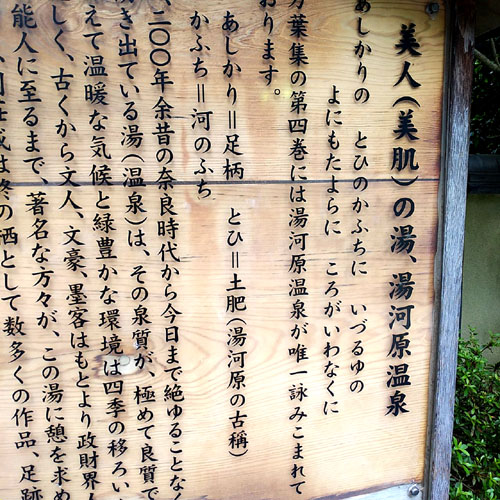 美人(美肌)の湯、湯河原温泉
あしかりの とひのかふちに いづるゆの
よにもたよらに ころがいわなくに
万葉集の第四巻には湯河原温泉が唯一詠みこまれて
おります。
あしかり＝足柄 とひ＝土肥(湯河原の古称)
かふち＝河のふち
二〇〇年余昔の奈良時代から今日まで絶ゆることなく
き出ている湯(温泉)は、その泉質が、極めて良質で
えて温暖な気候と緑豊かな環境は四季の移ろい
しく、古くから文人、文豪、墨客はもとより政財界人
能人に至るまで、著名な方々が、この湯に憩を求め
は終の栖として数多くの作品、足跡